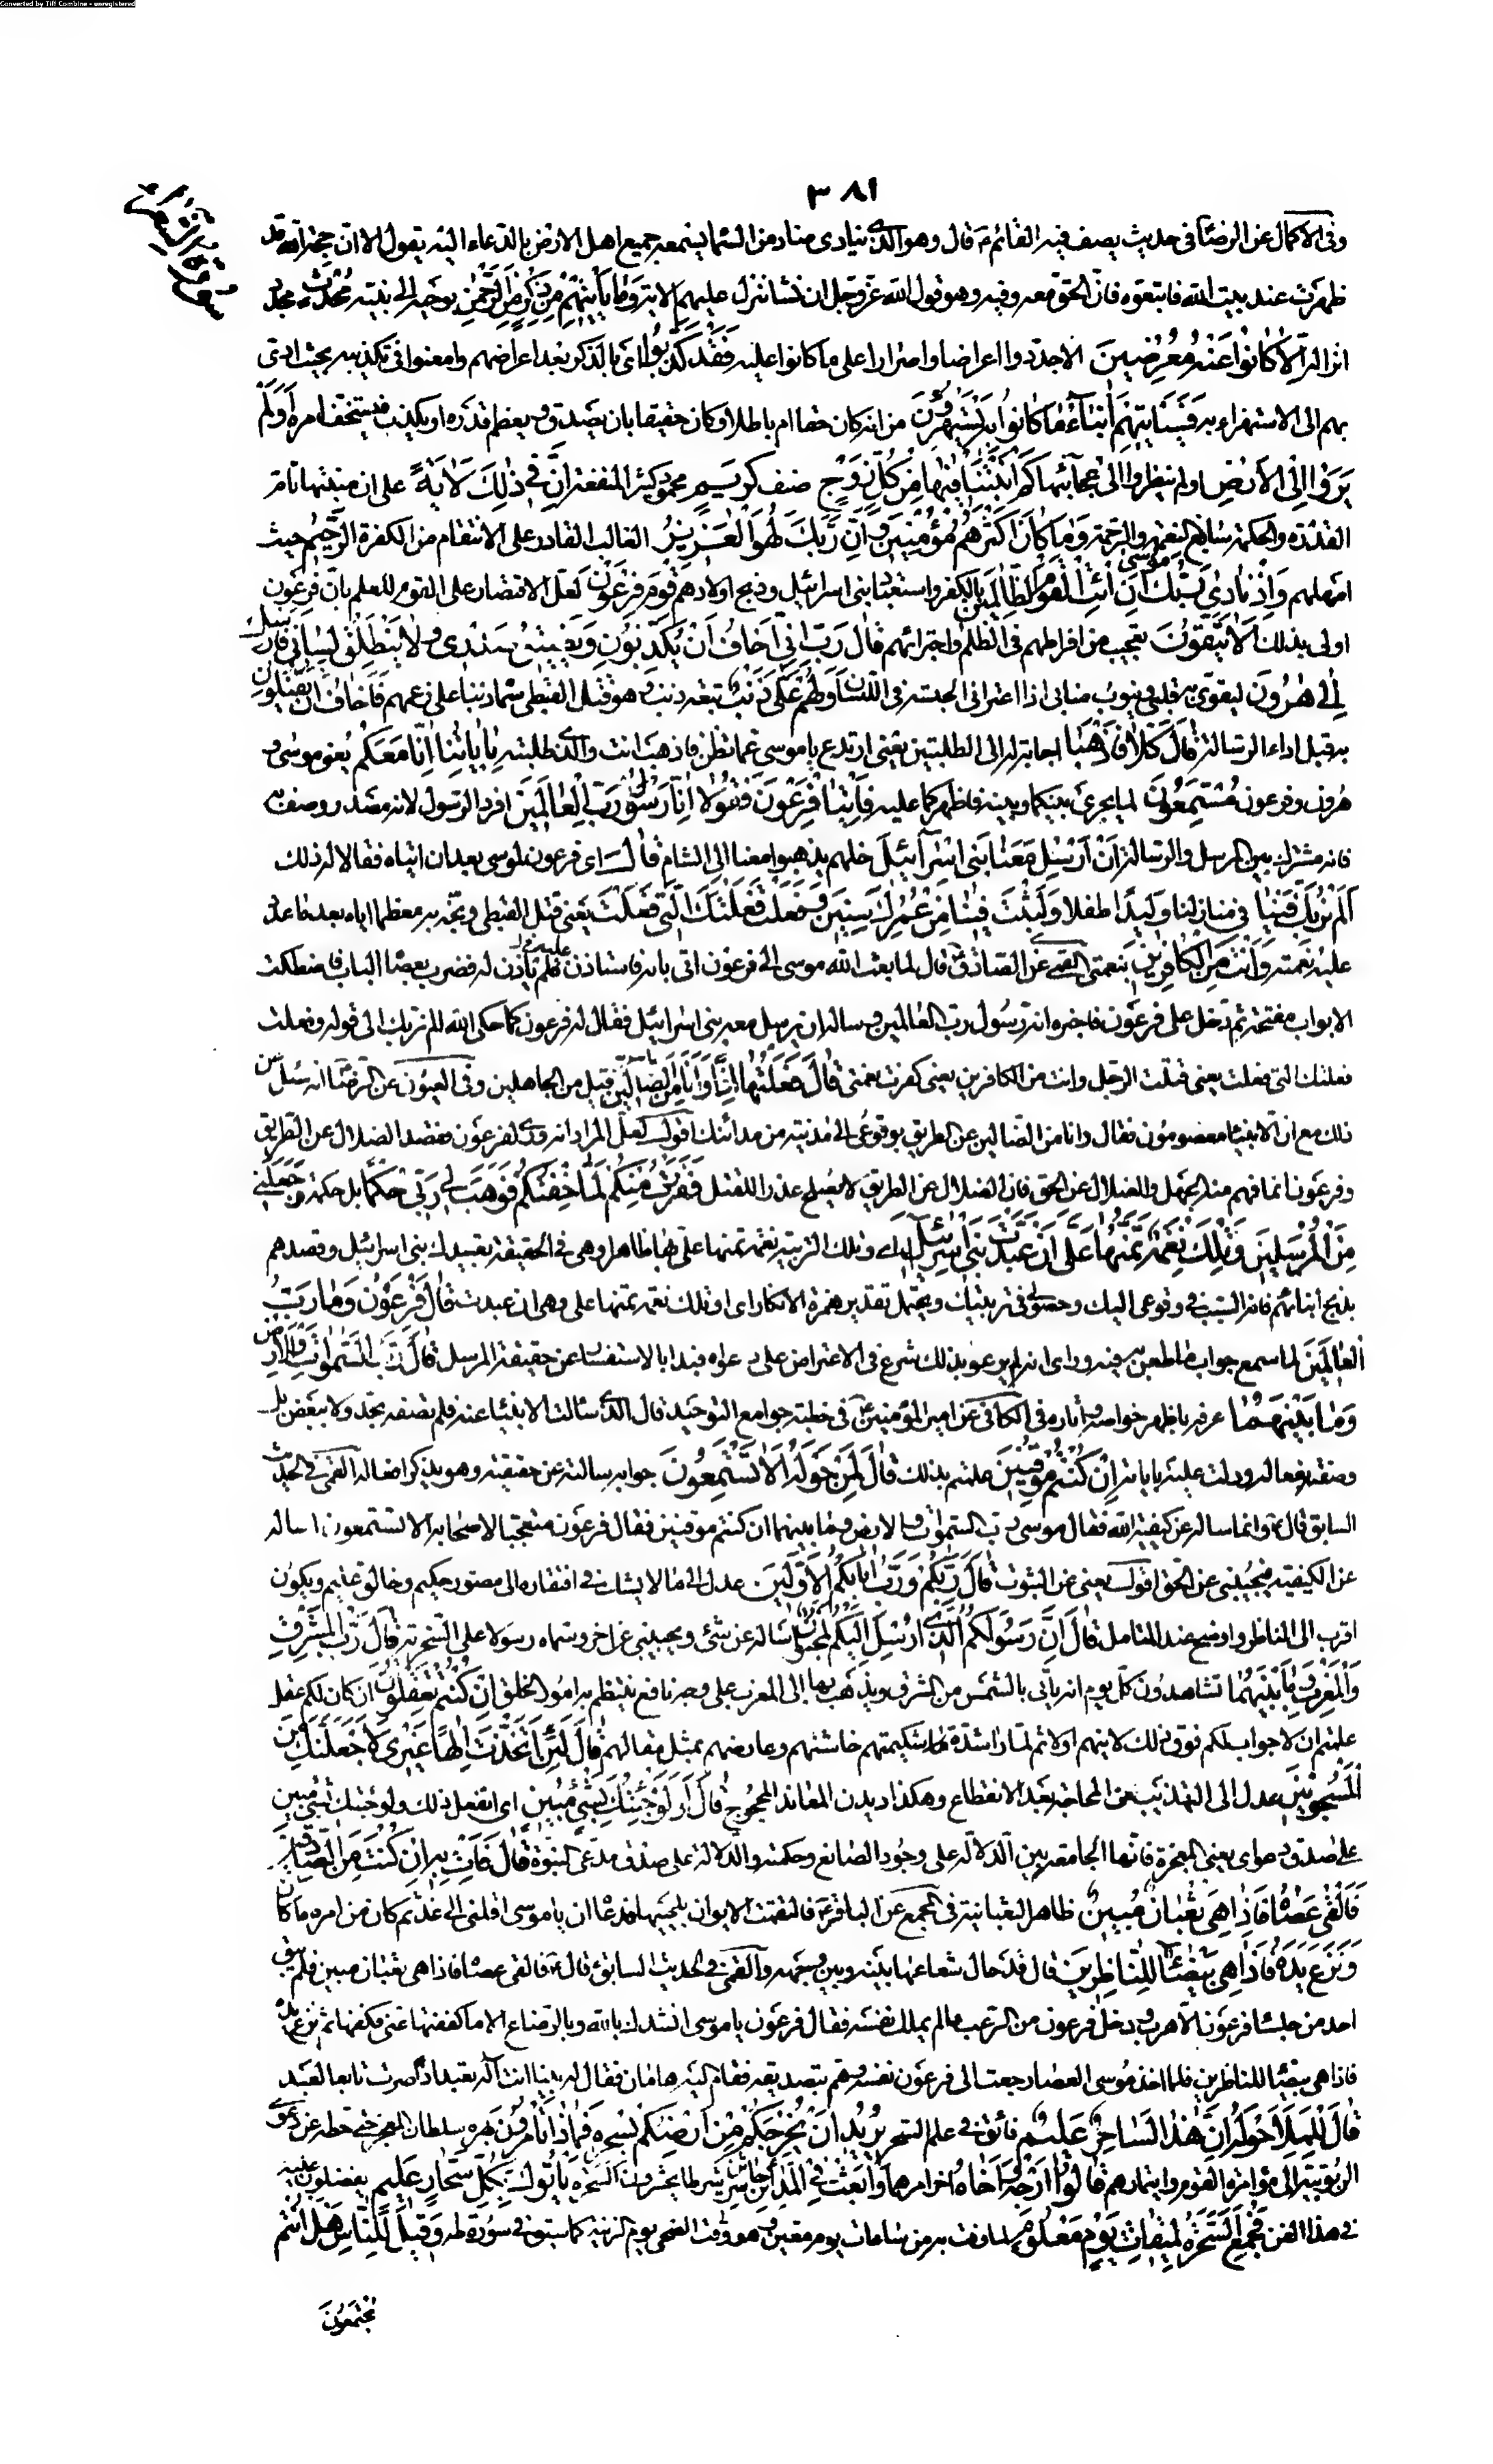 Converted by Tiff Combine - unregistered
٣٨١
سورة الشعراء
وفي الاكمال عن الرضا في حديث يصف فيه القائم قال وهو الذي ينادي مناد من السماء يسمعه جميع اهل الارض بالدعاء اليه يقول الا ان حجة الله قد
ظهرت عند بيت الله فاتبعوه فان الحق معه وفيه وهو قول الله عز وجل ان نشأ ننزل عليهم الاية وَمَا يَأْتِيهِمْ مِنْ ذِكْرٍ مِنَ الرَّحْمٰنِ يوحيه الى نبيه مُحْدَثٍ مجدد
انزاله اِلَّا كَانُوا عَنْهُ مُعْرِضِينَ الا جددوا اعراضا واصرارا على ما كانوا عليه فَقَدْ كَذَّبُوا اي بالذكر بعد اعراضهم وامعنوا في تكذيبه بحيث ادى
بهم الى الاستهزاء به فَسَيَأْتِيهِمْ اَنْبَاءُ مَا كَانُوا بِهِ يَسْتَهْزِؤُنَ من انه كان حقا ام باطلا وكان حقيقا بان يصدق ويعظم قدره او يكذب فيستخف امره اَوَلَمْ
يَرَوْا اِلَى الْاَرْضِ اولم ينظروا الى عجائبها كَمْ اَنْبَتْنَا فِيهَا مِنْ كُلِّ زَوْجٍ صنف كَرِيمٍ محمود كثير المنفعة اِنَّ فِي ذٰلِكَ لَاٰيَةً على ان منبتها تام
القدرة والحكمة سابغ النعمة والرحمة وَمَا كَانَ اَكْثَرُهُمْ مُؤْمِنِينَ وَاِنَّ رَبَّكَ لَهُوَ الْعَزِيزُ الغالب القادر على الانتقام من الكفرة الرَّحِيمُ حيث
امهلهم وَاِذْ نَادٰى رَبُّكَ مُوسٰى اَنِ ائْتِ الْقَوْمَ الظَّالِمِينَ بالكفر واستعباد بني اسرائيل وذبح اولادهم قَوْمَ فِرْعَوْنَ لعل الاقتصار على القوم للعلم بان فرعون
اولى بذلك اَلَا يَتَّقُونَ تعجيب من افراطهم في الظلم واجترائهم قَالَ رَبِّ اِنِّي اَخَافُ اَنْ يُكَذِّبُونِ وَيَضِيقُ صَدْرِي وَلَا يَنْطَلِقُ لِسَانِي فَاَرْسِلْ
اِلٰى هٰرُونَ ليقوى به قلبي وينوب منابي اذا اعتراني الحبسة في اللسان وَلَهُمْ عَلَيَّ ذَنْبٌ تبعة ذنب وهو قتل القبطي سماه ذنبا على زعمهم فَاَخَافُ اَنْ يَقْتُلُونِ
به قبل اداء الرسالة قَالَ كَلَّا فَاذْهَبَا اجابة له الى الطلبتين يعني ارتدع يا موسى عما تظن فاذهب انت والذي طلبته بِاٰيَاتِنَا اِنَّا مَعَكُمْ يعني موسى و
هرون وفرعون مُسْتَمِعُونَ لما يجري بينكما وبينه فاظهركما عليه فَأْتِيَا فِرْعَوْنَ فَقُولَا اِنَّا رَسُولُ رَبِّ الْعَالَمِينَ افرد الرسول لانه مصدر وصف به
فانه مشترك بين المرسل والرسالة اَنْ اَرْسِلْ مَعَنَا بَنِي اِسْرَائِيلَ خلهم يذهبوا معنا الى الشام قَالَ اي فرعون لموسى بعد ان اتياه فقالا له ذلك
اَلَمْ نُرَبِّكَ فِينَا في منازلنا وَلِيدًا طفلا وَلَبِثْتَ فِينَا مِنْ عُمُرِكَ سِنِينَ وَفَعَلْتَ فَعْلَتَكَ الَّتِي فَعَلْتَ يعني قتل القبطي وبخه به معظما اياه بعد ما عدد
عليه نعمته وَاَنْتَ مِنَ الْكَافِرِينَ بنعمتي القمي عن الصادق قال لما بعث الله موسى الى فرعون اتى بابه فاستاذن عليه فلم ياذن له فضرب بعصاه الباب فاصطكت
الابواب مفتحة ثم دخل على فرعون فاخبره انه رسول رب العالمين وساله ان يرسل معه بني اسرائيل فقال له فرعون كما حكى الله الم نربك الى قوله وفعلت
فعلتك التي فعلت يعني قتلت الرجل وانت من الكافرين يعني كفرت نعمتي قَالَ فَعَلْتُهَا اِذًا وَاَنَا مِنَ الضَّالِّينَ قيل من الجاهلين وفي العيون عن الرضا انه سئل عن
ذلك مع ان الانبياء معصومون فقال وانا من الضالين عن الطريق بوقوعي الى مدينة من مدائنك اقول لعل المراد انه ورى لفرعون فقصد الضلال عن الطريق
وفرعون انما فهم منه الجهل والضلال عن الحق فان الضلال عن الطريق لا يصلح عذرا للقتل فَفَرَرْتُ مِنْكُمْ لَمَّا خِفْتُكُمْ فَوَهَبَ لِي رَبِّي حُكْمًا بل حكمة وَجَعَلَنِي
مِنَ الْمُرْسَلِينَ وَتِلْكَ نِعْمَةٌ تَمُنُّهَا عَلَيَّ اَنْ عَبَّدْتَ بَنِي اِسْرَائِيلَ اي وتلك التربية نعمة تمنها علي بها ظاهرا وهي في الحقيقة تعبيدك بني اسرائيل وقصدهم
بذبح ابنائهم فانه السبب في وقوعي اليك وحصولي في تربيتك ويحتمل تقدير همزة الانكار اي او تلك نعمة تمنها علي وهي ان عبدت قَالَ فِرْعَوْنُ وَمَا رَبُّ
الْعَالَمِينَ لما سمع جواب ما طعن به فيه وراى انه لم يرعو بذلك شرع في الاعتراض على دعواه فبدا بالاستفسار عن حقيقة المرسل قَالَ رَبُّ السَّمٰوَاتِ وَالْاَرْضِ
وَمَا بَيْنَهُمَا عرفه باظهر خواصه واثاره وفي الكافي عن امير المؤمنين في خطبة جوامع التوحيد قال الذي سالت الانبياء عنه فلم تصفه بحد ولا ببعض بل
وصفته بفعاله ودلت عليه باياته اِنْ كُنْتُمْ مُوقِنِينَ علمتم بذلك قَالَ لِمَنْ حَوْلَهُ اَلَا تَسْتَمِعُونَ جوابه سالته عن حقيقته وهو يذكر افعاله القمي في الحديث
السابق قال وانما ساله عن كيفية الله فقال موسى رب السموات والارض وما بينهما ان كنتم موقنين فقال فرعون متعجبا لاصحابه الا تستمعون اساله
عن الكيفية فيجيبني عن الحق اقول يعني عن الثبوت قَالَ رَبُّكُمْ وَرَبُّ اٰبَائِكُمُ الْاَوَّلِينَ عدل الى ما لا يشك في افتقاره الى مصور حكيم وخالق عليم ويكون
اقرب الى الناظر واوضح عند المتامل قَالَ اِنَّ رَسُولَكُمُ الَّذِي اُرْسِلَ اِلَيْكُمْ لَمَجْنُونٌ اساله عن شئ ويجيبني عن اخر وسماه رسولا على السخرية قَالَ رَبُّ الْمَشْرِقِ
وَالْمَغْرِبِ وَمَا بَيْنَهُمَا تشاهدون كل يوم انه ياتي بالشمس من المشرق ويذهب بها الى المغرب على وجه نافع ينتظم به امور الخلق اِنْ كُنْتُمْ تَعْقِلُونَ ان كان لكم عقل
علمتم ان لا جواب لكم فوق ذلك لاينهم اولا ثم لما راى شدة شكيمتهم خاشنهم وعارضهم بمثل مقالهم قَالَ لَئِنِ اتَّخَذْتَ اِلٰهًا غَيْرِي لَاَجْعَلَنَّكَ مِنَ
الْمَسْجُونِينَ عدل الى التهديد عن المحاجة بعد الانقطاع وهكذا ديدن المعاند المحجوج قَالَ اَوَلَوْ جِئْتُكَ بِشَيْءٍ مُبِينٍ اي اتفعل ذلك ولو جئتك بشئ مبين
على صدق دعواي يعني المعجزة فانها الجامعة بين الدلالة على وجود الصانع وحكمته والدلالة على صدق مدعي النبوة قَالَ فَأْتِ بِهِ اِنْ كُنْتَ مِنَ الصَّادِقِينَ
فَاَلْقٰى عَصَاهُ فَاِذَا هِيَ ثُعْبَانٌ مُبِينٌ ظاهر الثعبانية في المجمع عن الباقر فالتقمت الايوان بلحييها فدعاه ان يا موسى اقلني الى غد ثم كان من امره ما كان
وَنَزَعَ يَدَهُ فَاِذَا هِيَ بَيْضَاءُ لِلنَّاظِرِينَ قال قد حال شعاعها بينه وبين وجهه والقمي في الحديث السابق قال فالقى عصاه فاذا هي ثعبان مبين فلم يبق
احد من جلساء فرعون الا هرب ودخل فرعون من الرعب ما لم يملك نفسه فقال فرعون يا موسى انشدك بالله وبالرضاع الا ما كففتها عني فكفها ثم نزع يده
فاذا هي بيضاء للناظرين فلما اخذ موسى العصا رجعت الى فرعون نفسه وهم بتصديقه فقام اليه هامان فقال له بينا انت اله تعبد اذ صرت تابعا لعبد
قَالَ لِلْمَلَاِ حَوْلَهُ اِنَّ هٰذَا لَسَاحِرٌ عَلِيمٌ فائق في علم السحر يُرِيدُ اَنْ يُخْرِجَكُمْ مِنْ اَرْضِكُمْ بِسِحْرِهِ فَمَاذَا تَأْمُرُونَ بهره سلطان المعجزة حتى حطه عن دعوى
الربوبية الى مؤامرة القوم وايتمارهم قَالُوا اَرْجِهْ وَاَخَاهُ اخر امرهما وَابْعَثْ فِي الْمَدَائِنِ حَاشِرِينَ شرطا يحشرون السحرة يَأْتُوكَ بِكُلِّ سَحَّارٍ عَلِيمٍ يفضلون عليه
في هذا الفن فَجُمِعَ السَّحَرَةُ لِمِيقَاتِ يَوْمٍ مَعْلُومٍ لما وقت به من ساعات يوم معين وهو وقت الضحى يوم الزينة كما سبق في سورة طه وَقِيلَ لِلنَّاسِ هَلْ اَنْتُمْ
مُجْتَمِعُونَ